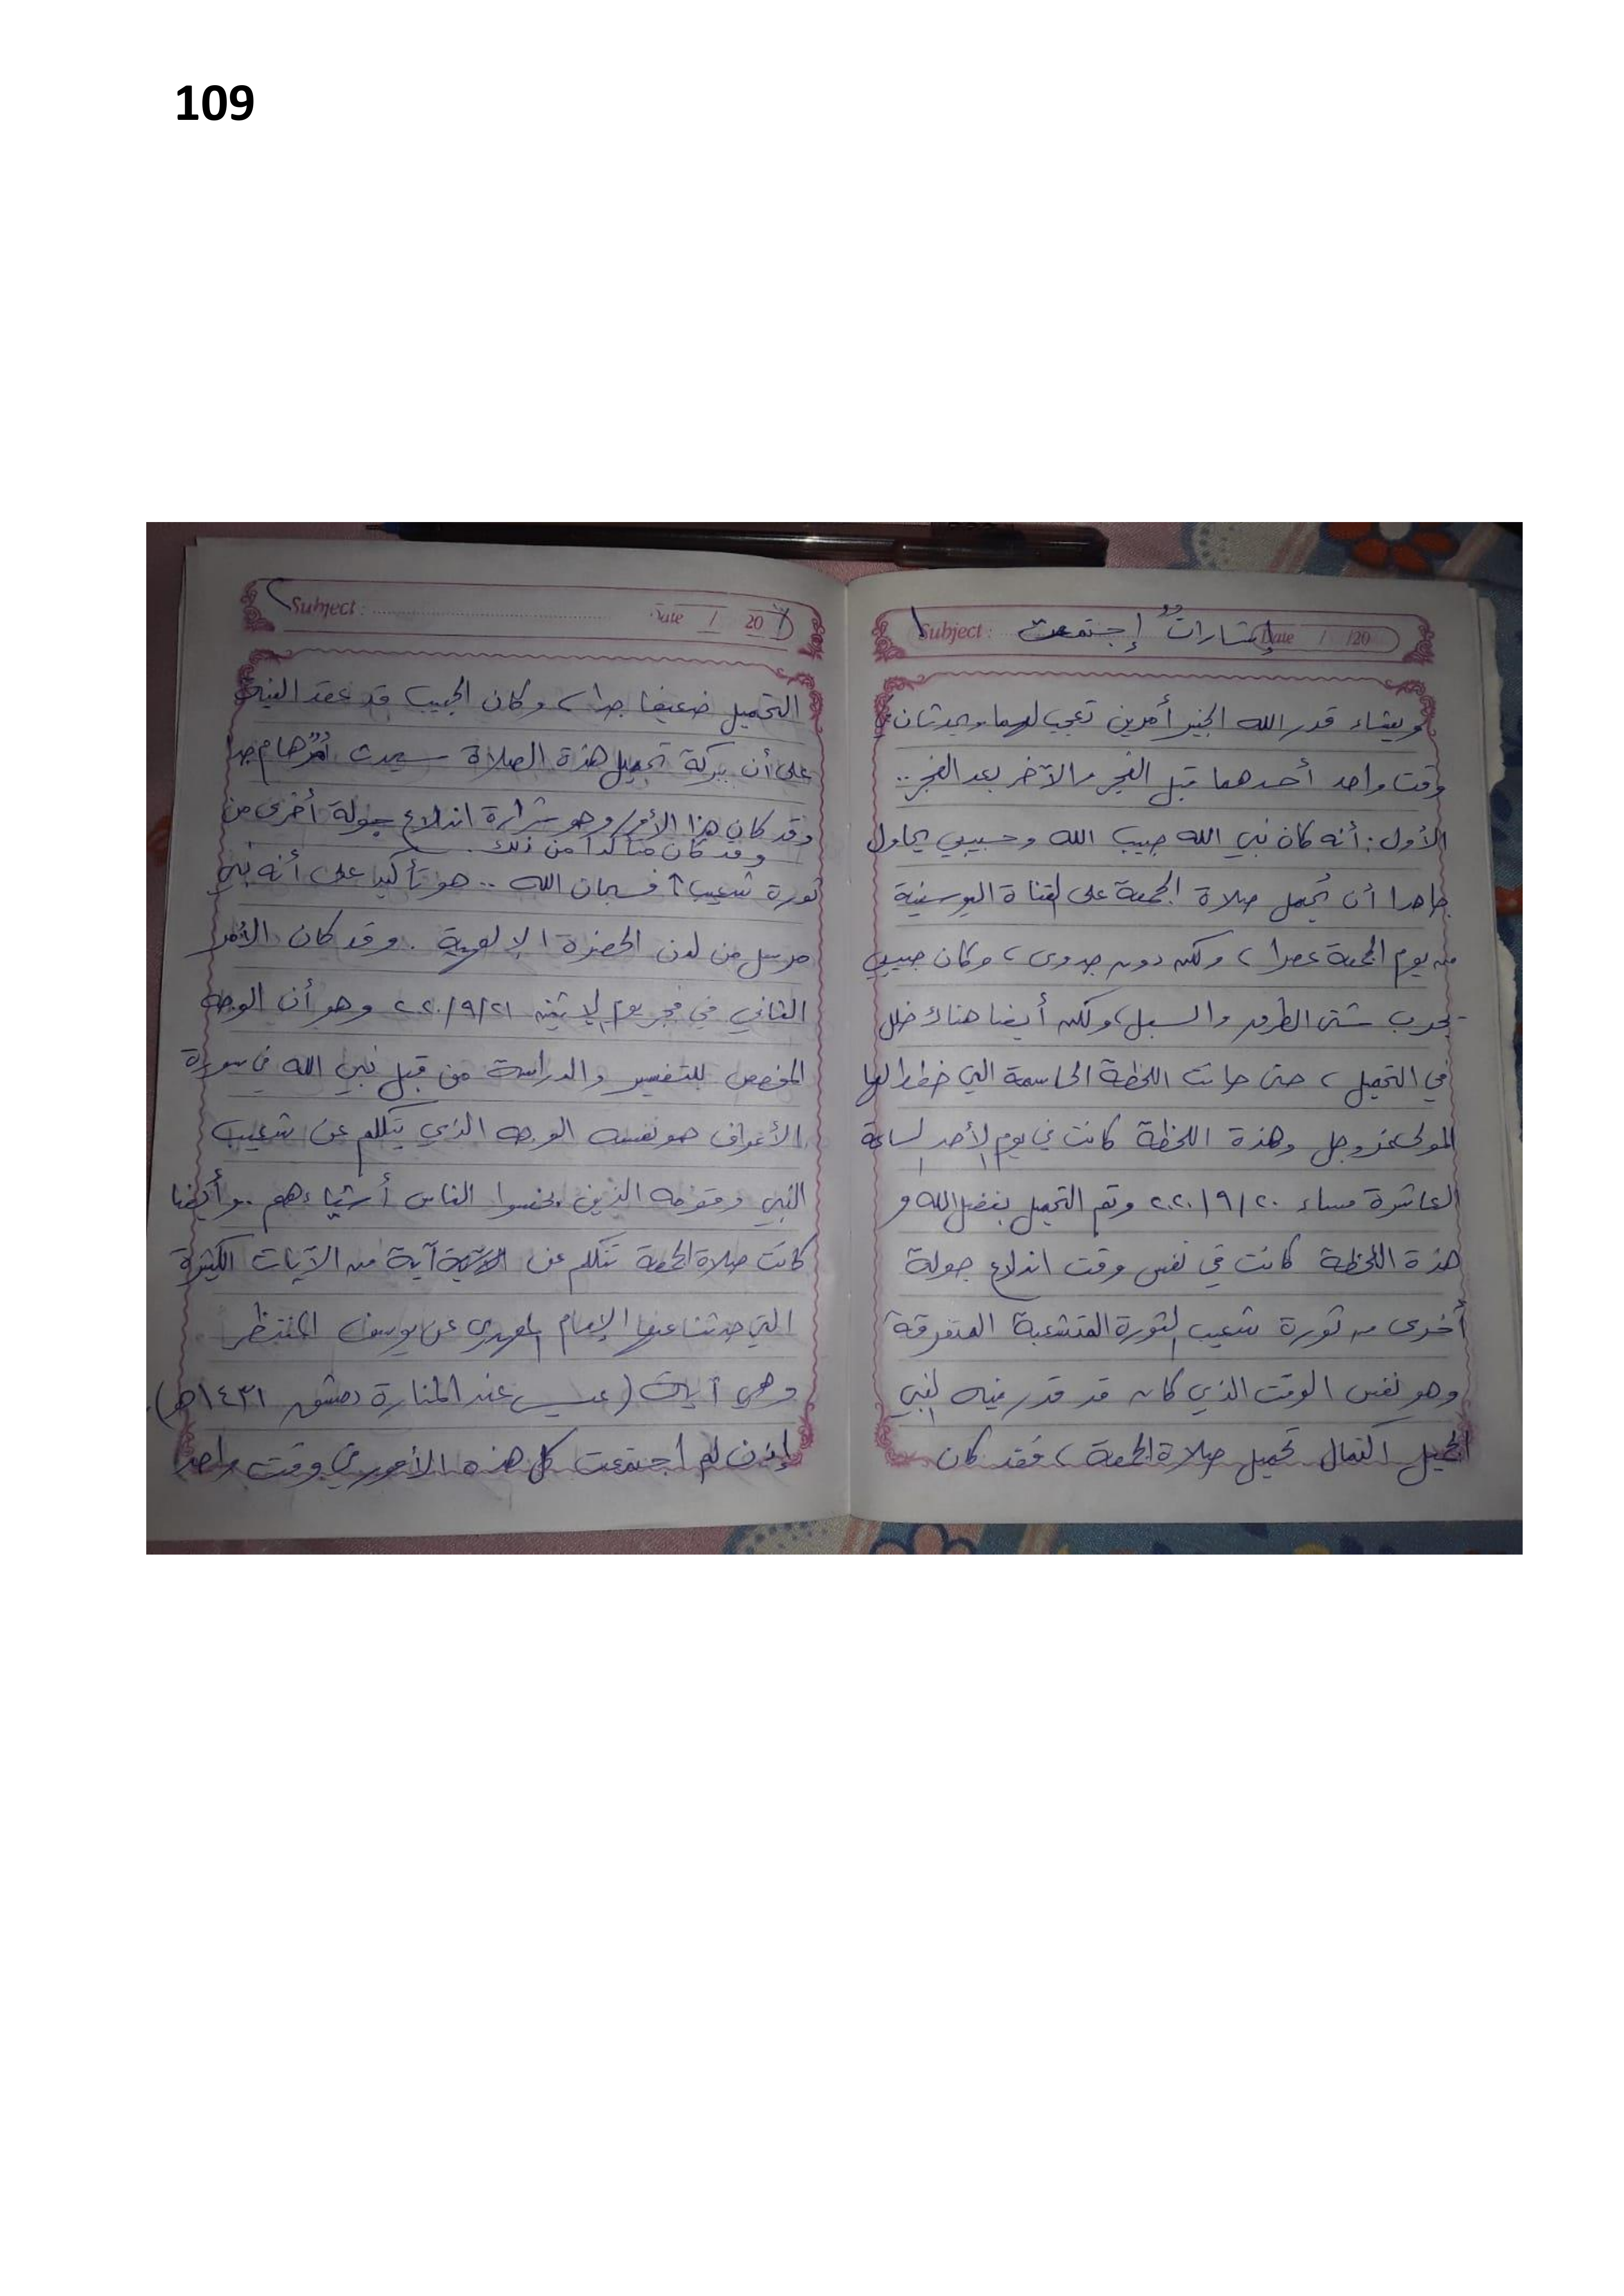 109
Subject : إشارات إجتمعت Date / /20
ويشاء قدر الله الخبير أمرين تعجب لهما ويحدثان في
وقت واحد أحدهما قبل الفجر والآخر بعد الفجر ..
الأول : أنه كان نبي الله حبيب الله وحبيبي يحاول
جاهدا أن يُحمل صلاة الجمعة على القناة اليوسفية
من يوم الجمعة عصرا ، ولكن دون جدوى ، وكان حبيبي
يجرب شتى الطرق والسبل ، ولكن أيضا هناك خلل
في التحميل ، حتى حانت اللحظة الحاسمة التي خطط لها
المولى عز وجل وهذة اللحظة كانت في يوم الأحد الساعة
العاشرة مساء ٢٠/٩/٢٠٢٠ وتم التحميل بفضل الله و
هذة اللحظة كانت في نفس وقت اندلاع جولة
أخرى من ثورة شعيب الثورة المتشعبة المتفرقة
وهو نفس الوقت الذي كان قد قدر فيه لنبي
الجميل اكتمال تحميل صلاة الجمعة ، فقد كان
Subject : Date / 20
التحميل ضعيفا جدا ، وكان الحبيب قد عقد النية
على أن ببركة تحميل هذة الصلاة سيحدث أمرٌ هام جدا
وقد كان هذا الأمر وهو شرارة اندلاع جولة أخرى من
وقد كان متأكدا من ذلك .
ثورة شعيب ↑ فسبحان الله .. هو تأكيد على أنه نبي
مرسل من لدن الحضرة الإلهية . وقد كان الأمر
الثاني في فجر يوم الإثنين ٢١/٩/٢٠٢٠ وهو أن الوجه
المخصص للتفسير والدراسة من قبل نبي الله في سورة
الأعراف هو نفسه الوجه الذي يتكلم عن شعيب
النبي وقومه الذين بخسوا الناس أشياءهم . وأيضا
كانت صلاة الجمعة تتكلم عن آية من الآيات الكثيرة
التي حدثنا عنها الإمام المهدي عن يوسف المنتظر
وهي آيات ( عيسى عند المنارة دمشق ١٤٣١هـ ) .
إذن لم اجتمعت كل هذه الأمور في وقت واحد